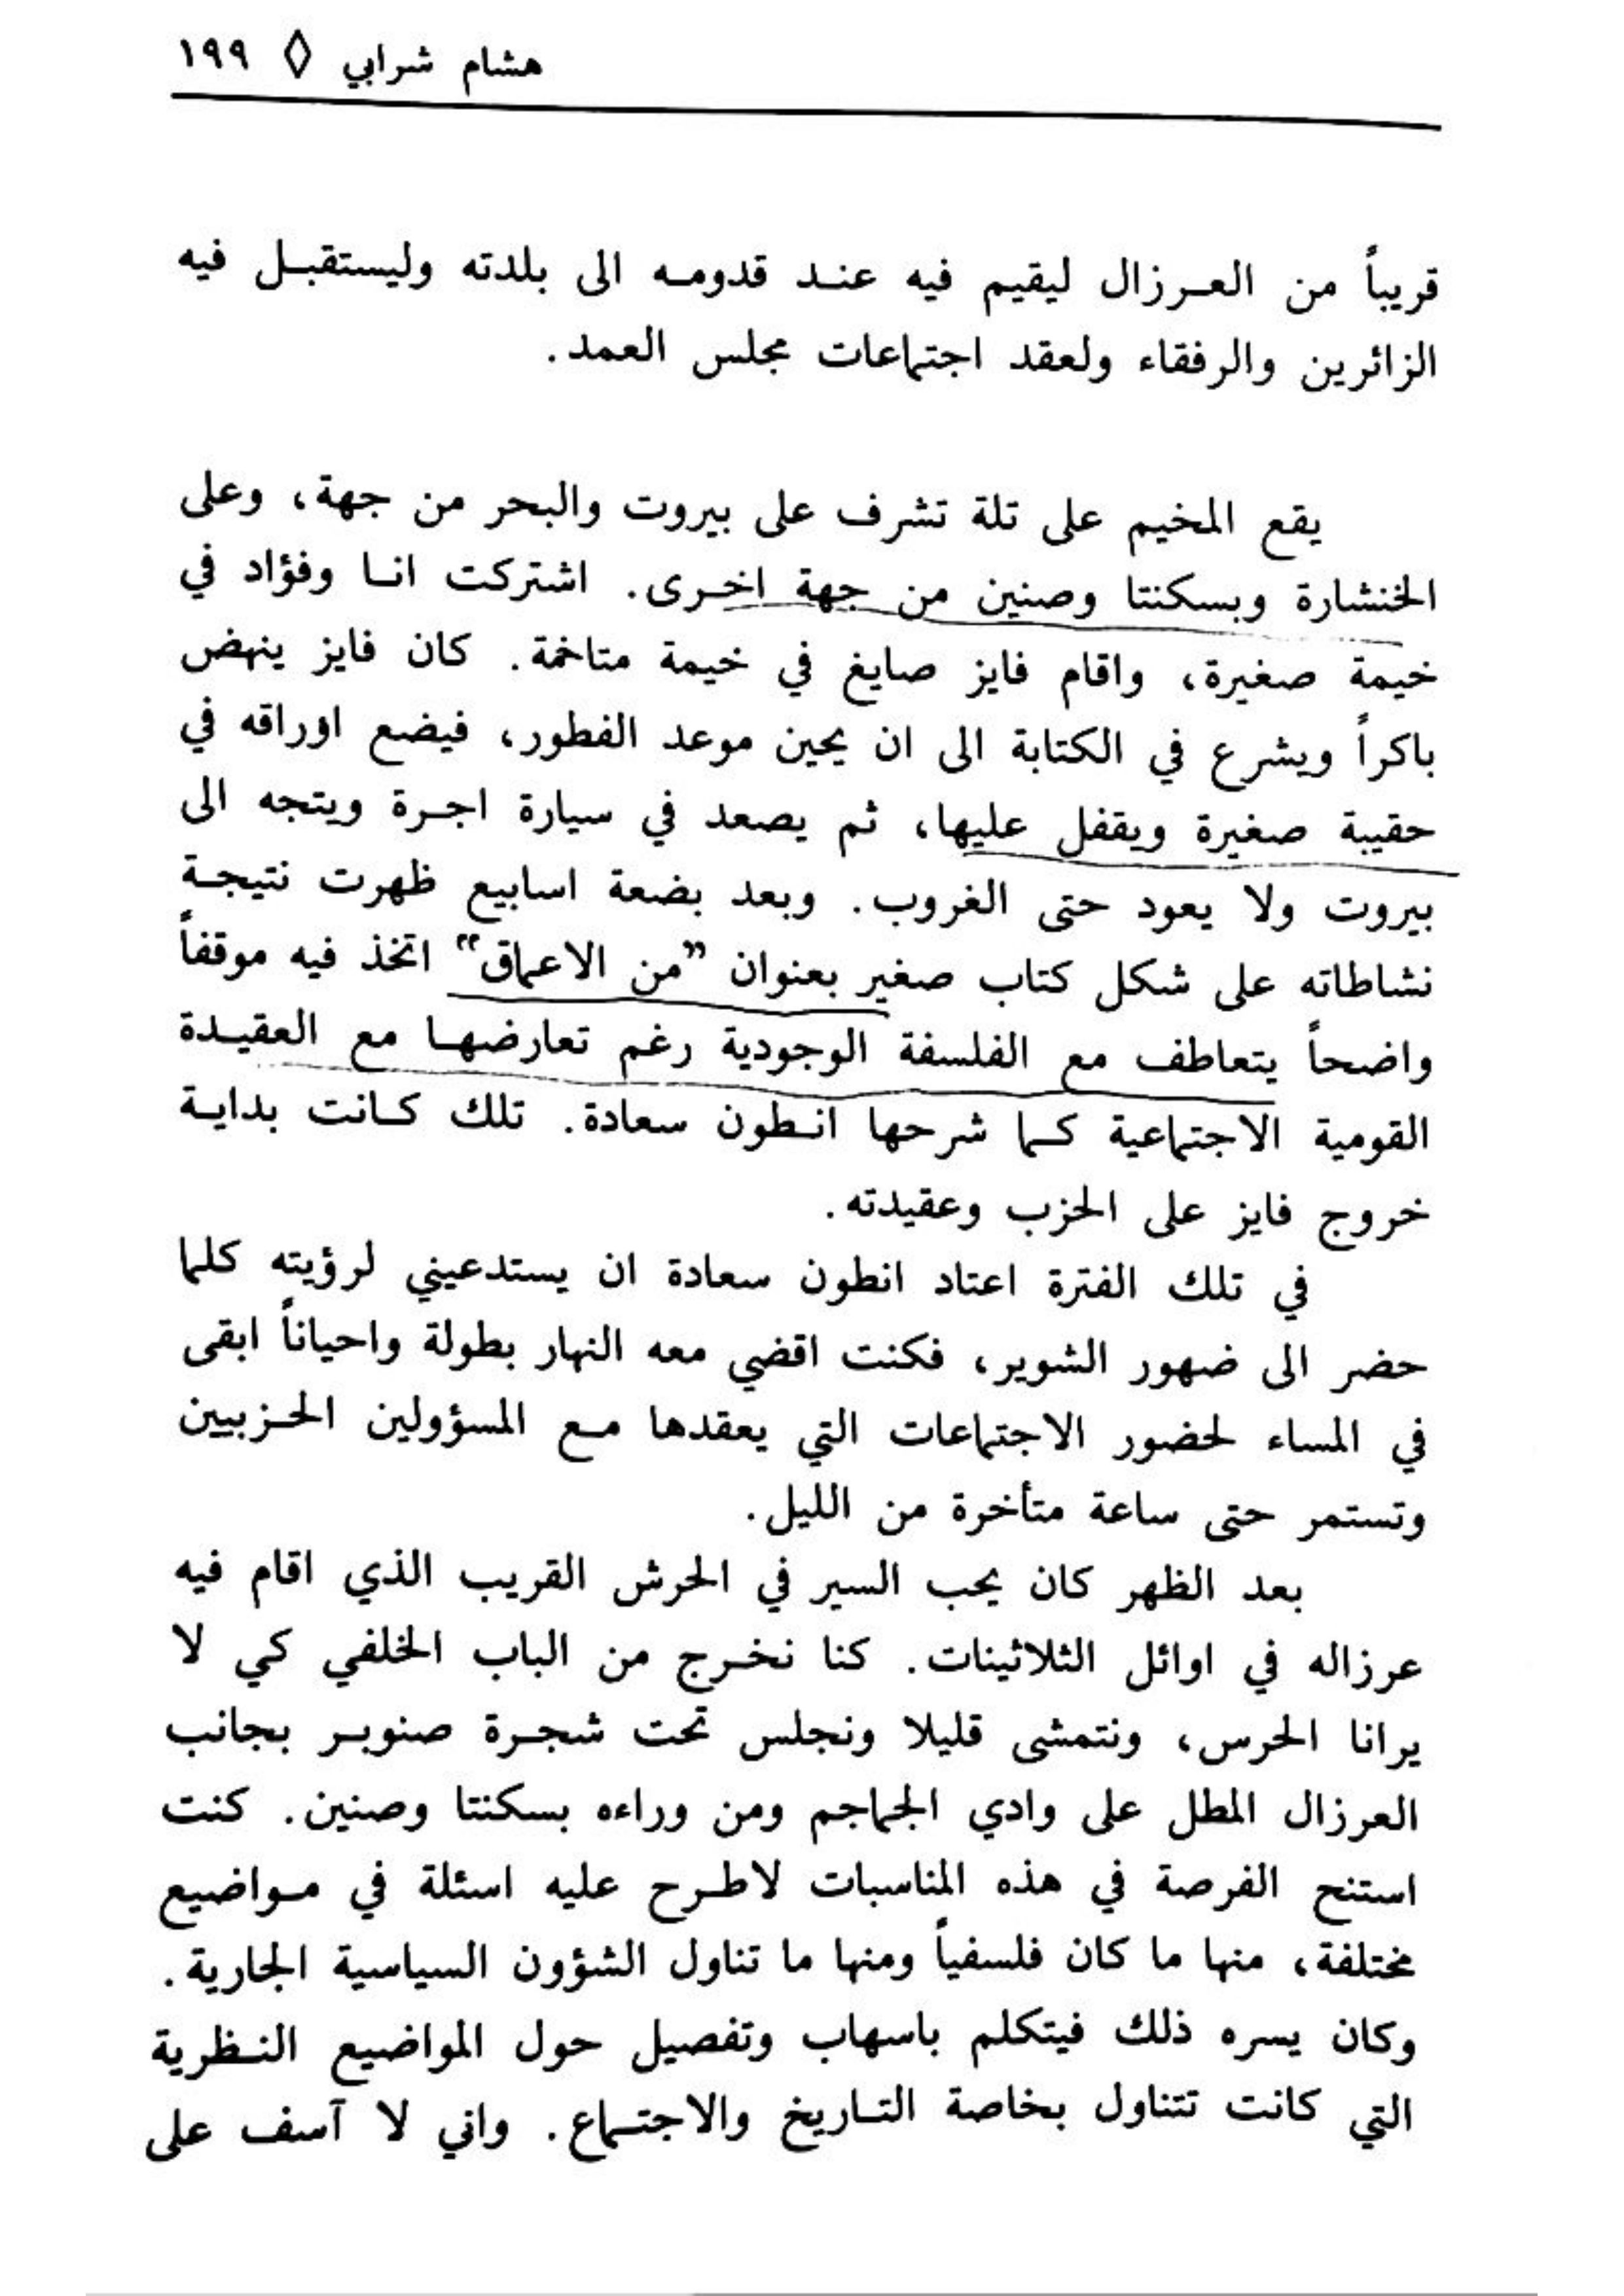 هشام شرابي ◊ ١٩٩
قريباً من العرزال ليقيم فيه عند قدومه الى بلدته وليستقبل فيه
الزائرين والرفقاء ولعقد اجتماعات مجلس العمد.
يقع المخيم على تلة تشرف على بيروت والبحر من جهة، وعلى
الخنشارة وبسكنتا وصنين من جهة اخرى. اشتركت انا وفؤاد في
خيمة صغيرة، واقام فايز صايغ في خيمة متاخمة. كان فايز ينهض
باكراً ويشرع في الكتابة الى ان يحين موعد الفطور، فيضع اوراقه في
حقيبة صغيرة ويقفل عليها، ثم يصعد في سيارة اجرة ويتجه الى
بيروت ولا يعود حتى الغروب. وبعد بضعة اسابيع ظهرت نتيجة
نشاطاته على شكل كتاب صغير بعنوان ”من الاعماق“ اتخذ فيه موقفاً
واضحاً يتعاطف مع الفلسفة الوجودية رغم تعارضها مع العقيدة
القومية الاجتماعية كما شرحها انطون سعادة. تلك كانت بداية
خروج فايز على الحزب وعقيدته.
في تلك الفترة اعتاد انطون سعادة ان يستدعيني لرؤيته كلما
حضر الى ضهور الشوير، فكنت اقضي معه النهار بطولة واحياناً ابقى
في المساء لحضور الاجتماعات التي يعقدها مع المسؤولين الحزبيين
وتستمر حتى ساعة متأخرة من الليل.
بعد الظهر كان يحب السير في الحرش القريب الذي اقام فيه
عرزاله في اوائل الثلاثينات. كنا نخرج من الباب الخلفي كي لا
يرانا الحرس، ونتمشى قليلا ونجلس تحت شجرة صنوبر بجانب
العرزال المطل على وادي الجماجم ومن وراءه بسكنتا وصنين. كنت
استنح الفرصة في هذه المناسبات لاطرح عليه اسئلة في مواضيع
مختلفة، منها ما كان فلسفياً ومنها ما تناول الشؤون السياسية الجارية.
وكان يسره ذلك فيتكلم باسهاب وتفصيل حول المواضيع النظرية
التي كانت تتناول بخاصة التاريخ والاجتماع. واني لا آسف على